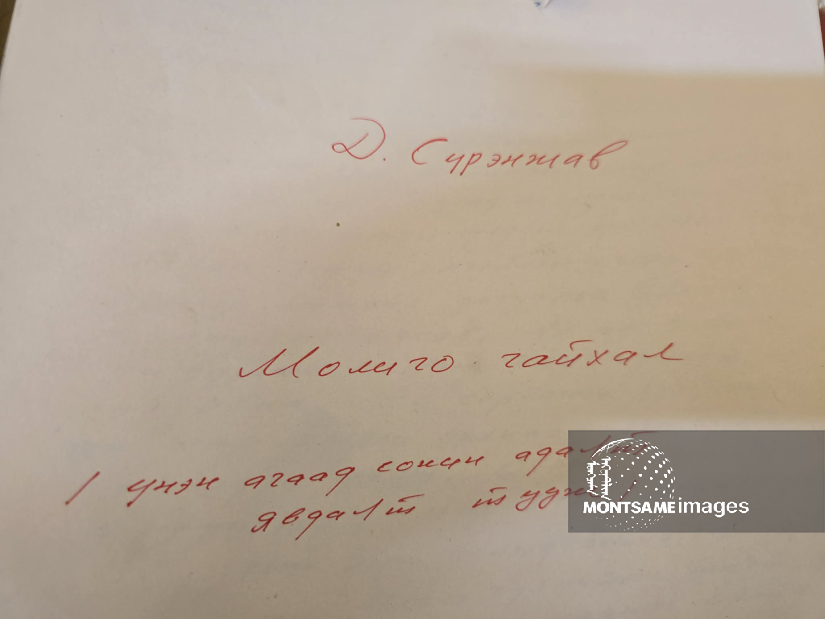 Д. Сүрэнжав
Молиго гайхал
/ үнэн агаад сонин адалт
явдалт тууж /
MONTSAME images